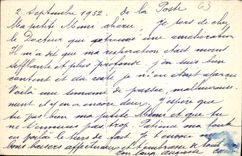 2 Septembre 1932. de la Poste 63
Ma petite Mémé chérie Je sors de chez
le Docteur qui a trouvé une amélioration
Il m'a dit que ma respiration était moins
sifflante et plus profonde j'en suis bien
content et du reste je m'en étais aperçu
Voilà une semaine de passée, malheureuse-
ment il y en a encore deux. J'espère que
tu vas bien ma petite Mémé et que tu
ne t'ennuies pas trop. Patience ma
on le temps de
bons baisers affectueux et